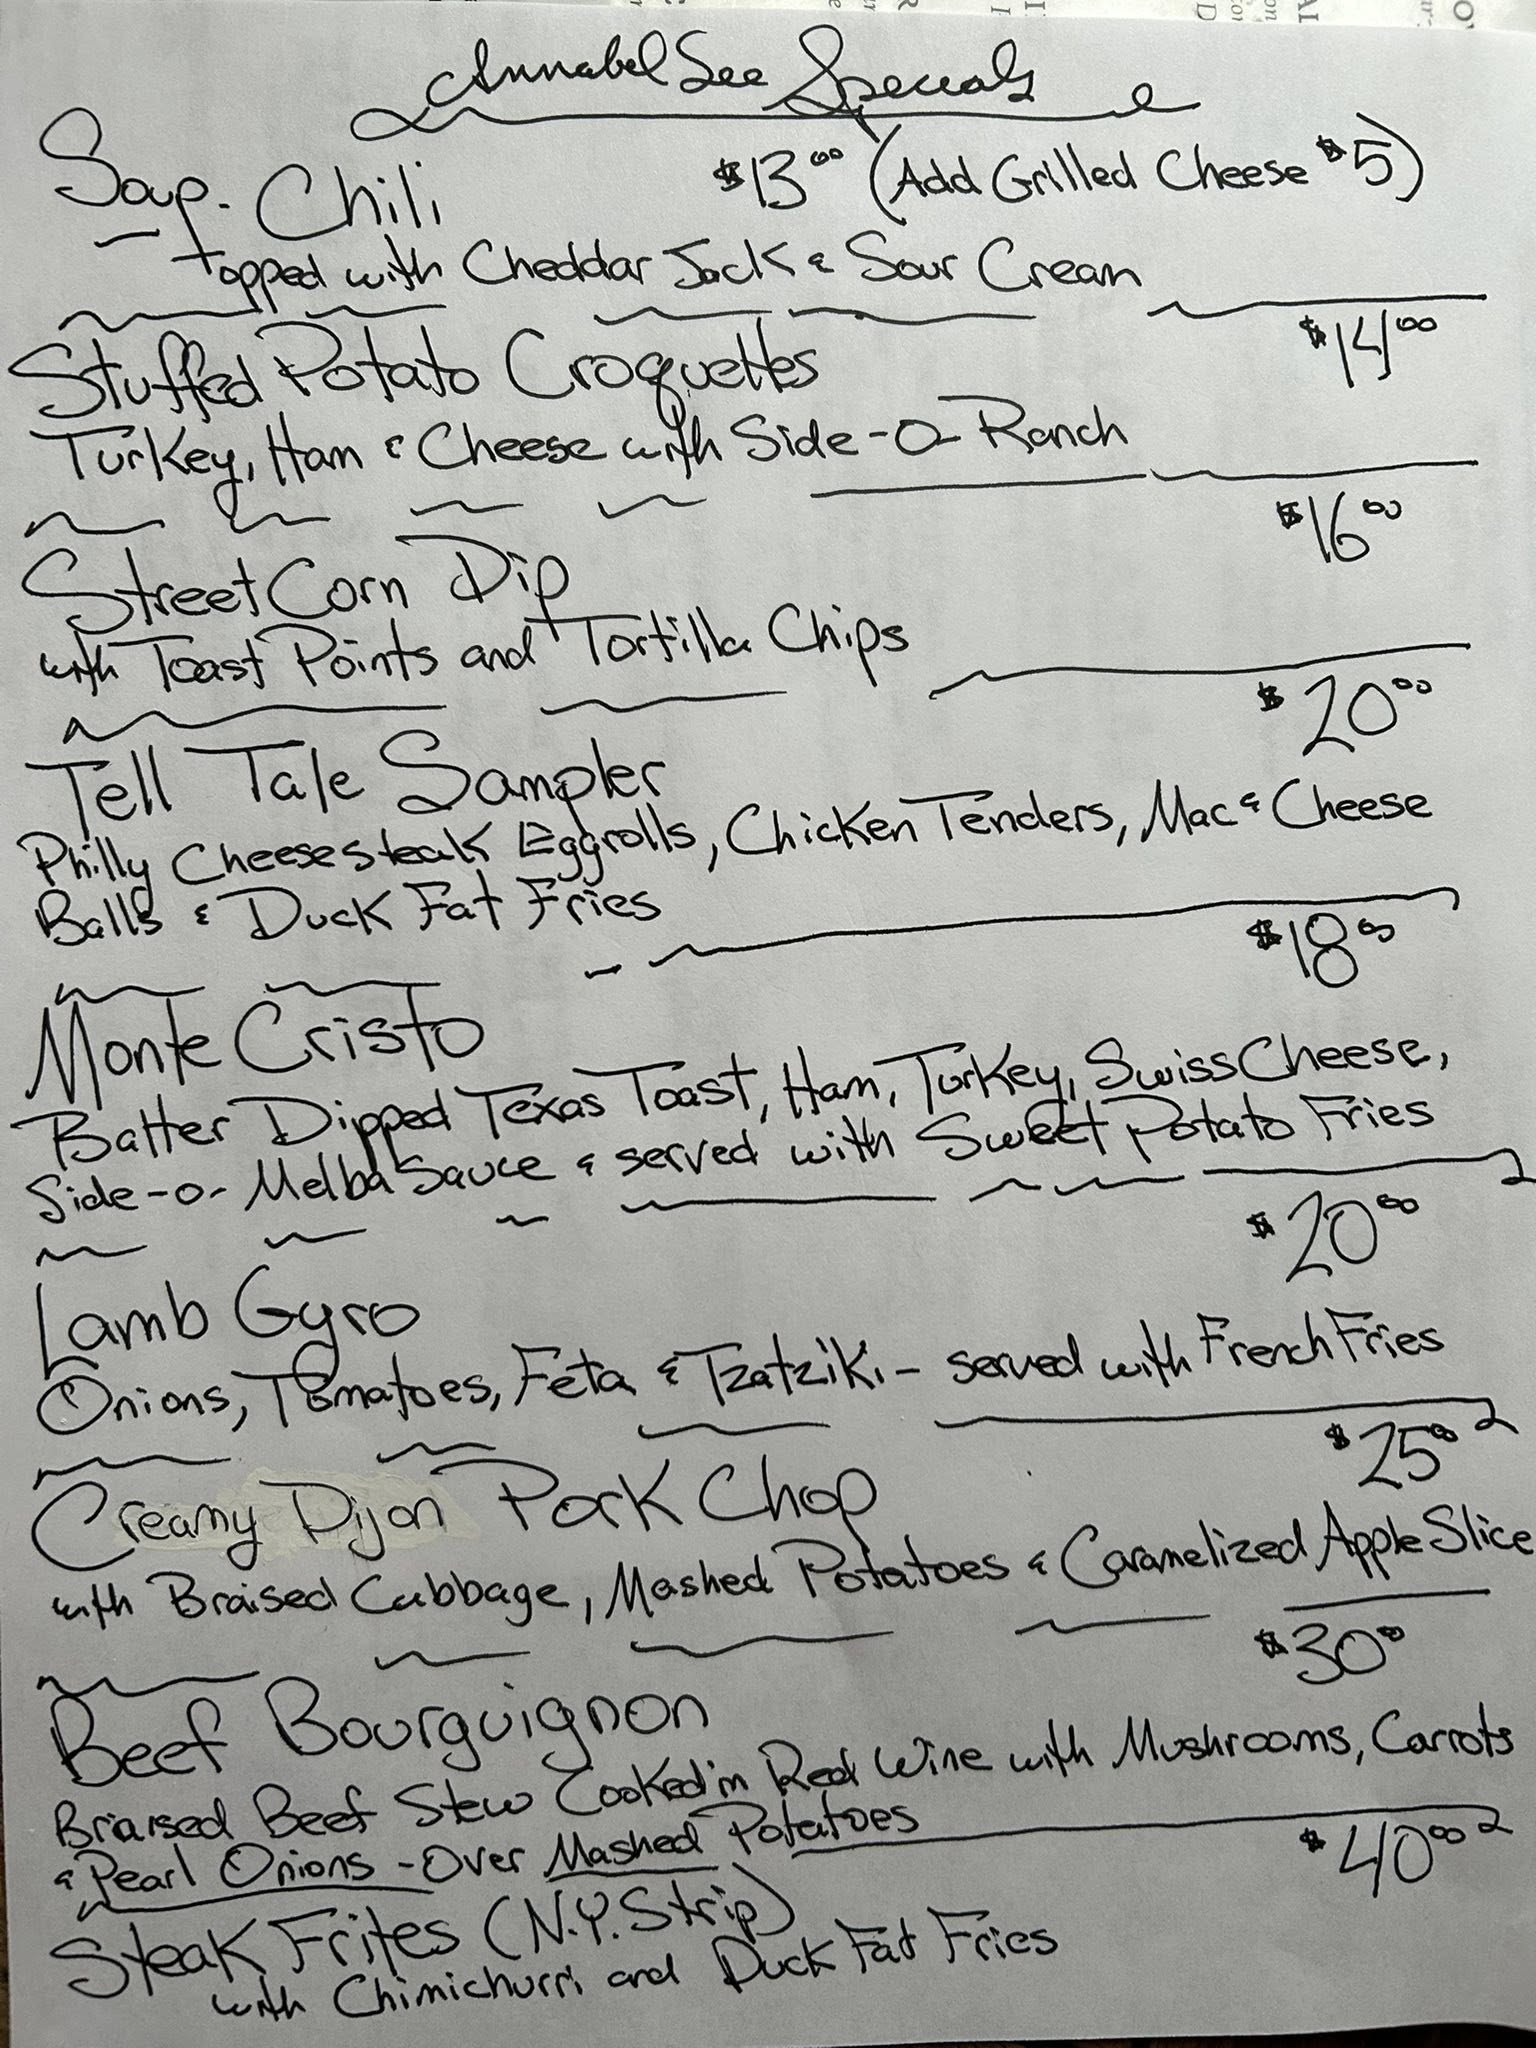 Annabel Lee Specials
Soup. Chili $13.00 (Add Grilled Cheese $5)
Topped with Cheddar Jack & Sour Cream
Stuffed Potato Croquettes $14.00
Turkey, Ham & Cheese with Side-O-Ranch
Street Corn Dip $16.00
with Toast Points and Tortilla Chips
Tell Tale Sampler $20.00
Philly Cheesesteak Eggrolls, Chicken Tenders, Mac & Cheese
Balls & Duck Fat Fries
Monte Cristo $18.00
Batter Dipped Texas Toast, Ham, Turkey, Swiss Cheese,
Side-o-Melba Sauce & served with Sweet Potato Fries
Lamb Gyro $20.00
Onions, Tomatoes, Feta & Tzatziki - served with French Fries
Creamy Dijon Pork Chop $25.00
with Braised Cabbage, Mashed Potatoes & Caramelized Apple Slice
Beef Bourguignon $30.00
Braised Beef Stew Cooked in Red Wine with Mushrooms, Carrots
& Pearl Onions - Over Mashed Potatoes
Steak Frites (N.Y. Strip) $40.00
with Chimichurri and Duck Fat Fries